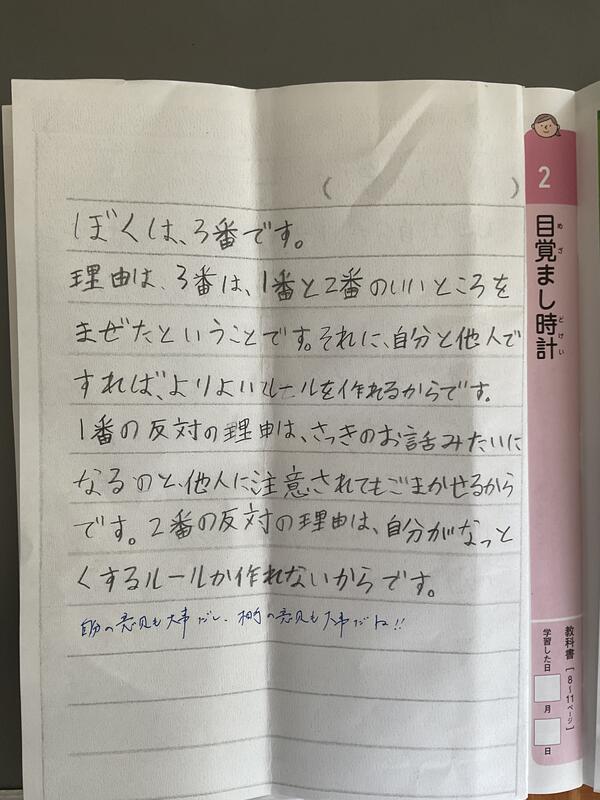 (　　　)
ぼくは、3番です。
理由は、3番は、1番と2番のいいところを
まぜたということです。それに、自分と他人で
すれば、よりよいルールを作れるからです。
1番の反対の理由は、さっきのお話みたいに
なるのと、他人に注意されてもごまかせるから
です。2番の反対の理由は、自分がなっと
くするルールか作れないからです。
自分の意見も大事だし、相手の意見も大事だね!!
2
目覚まし時計
めざ
どけい
教科書[8〜11ページ]
学習した日
月
日